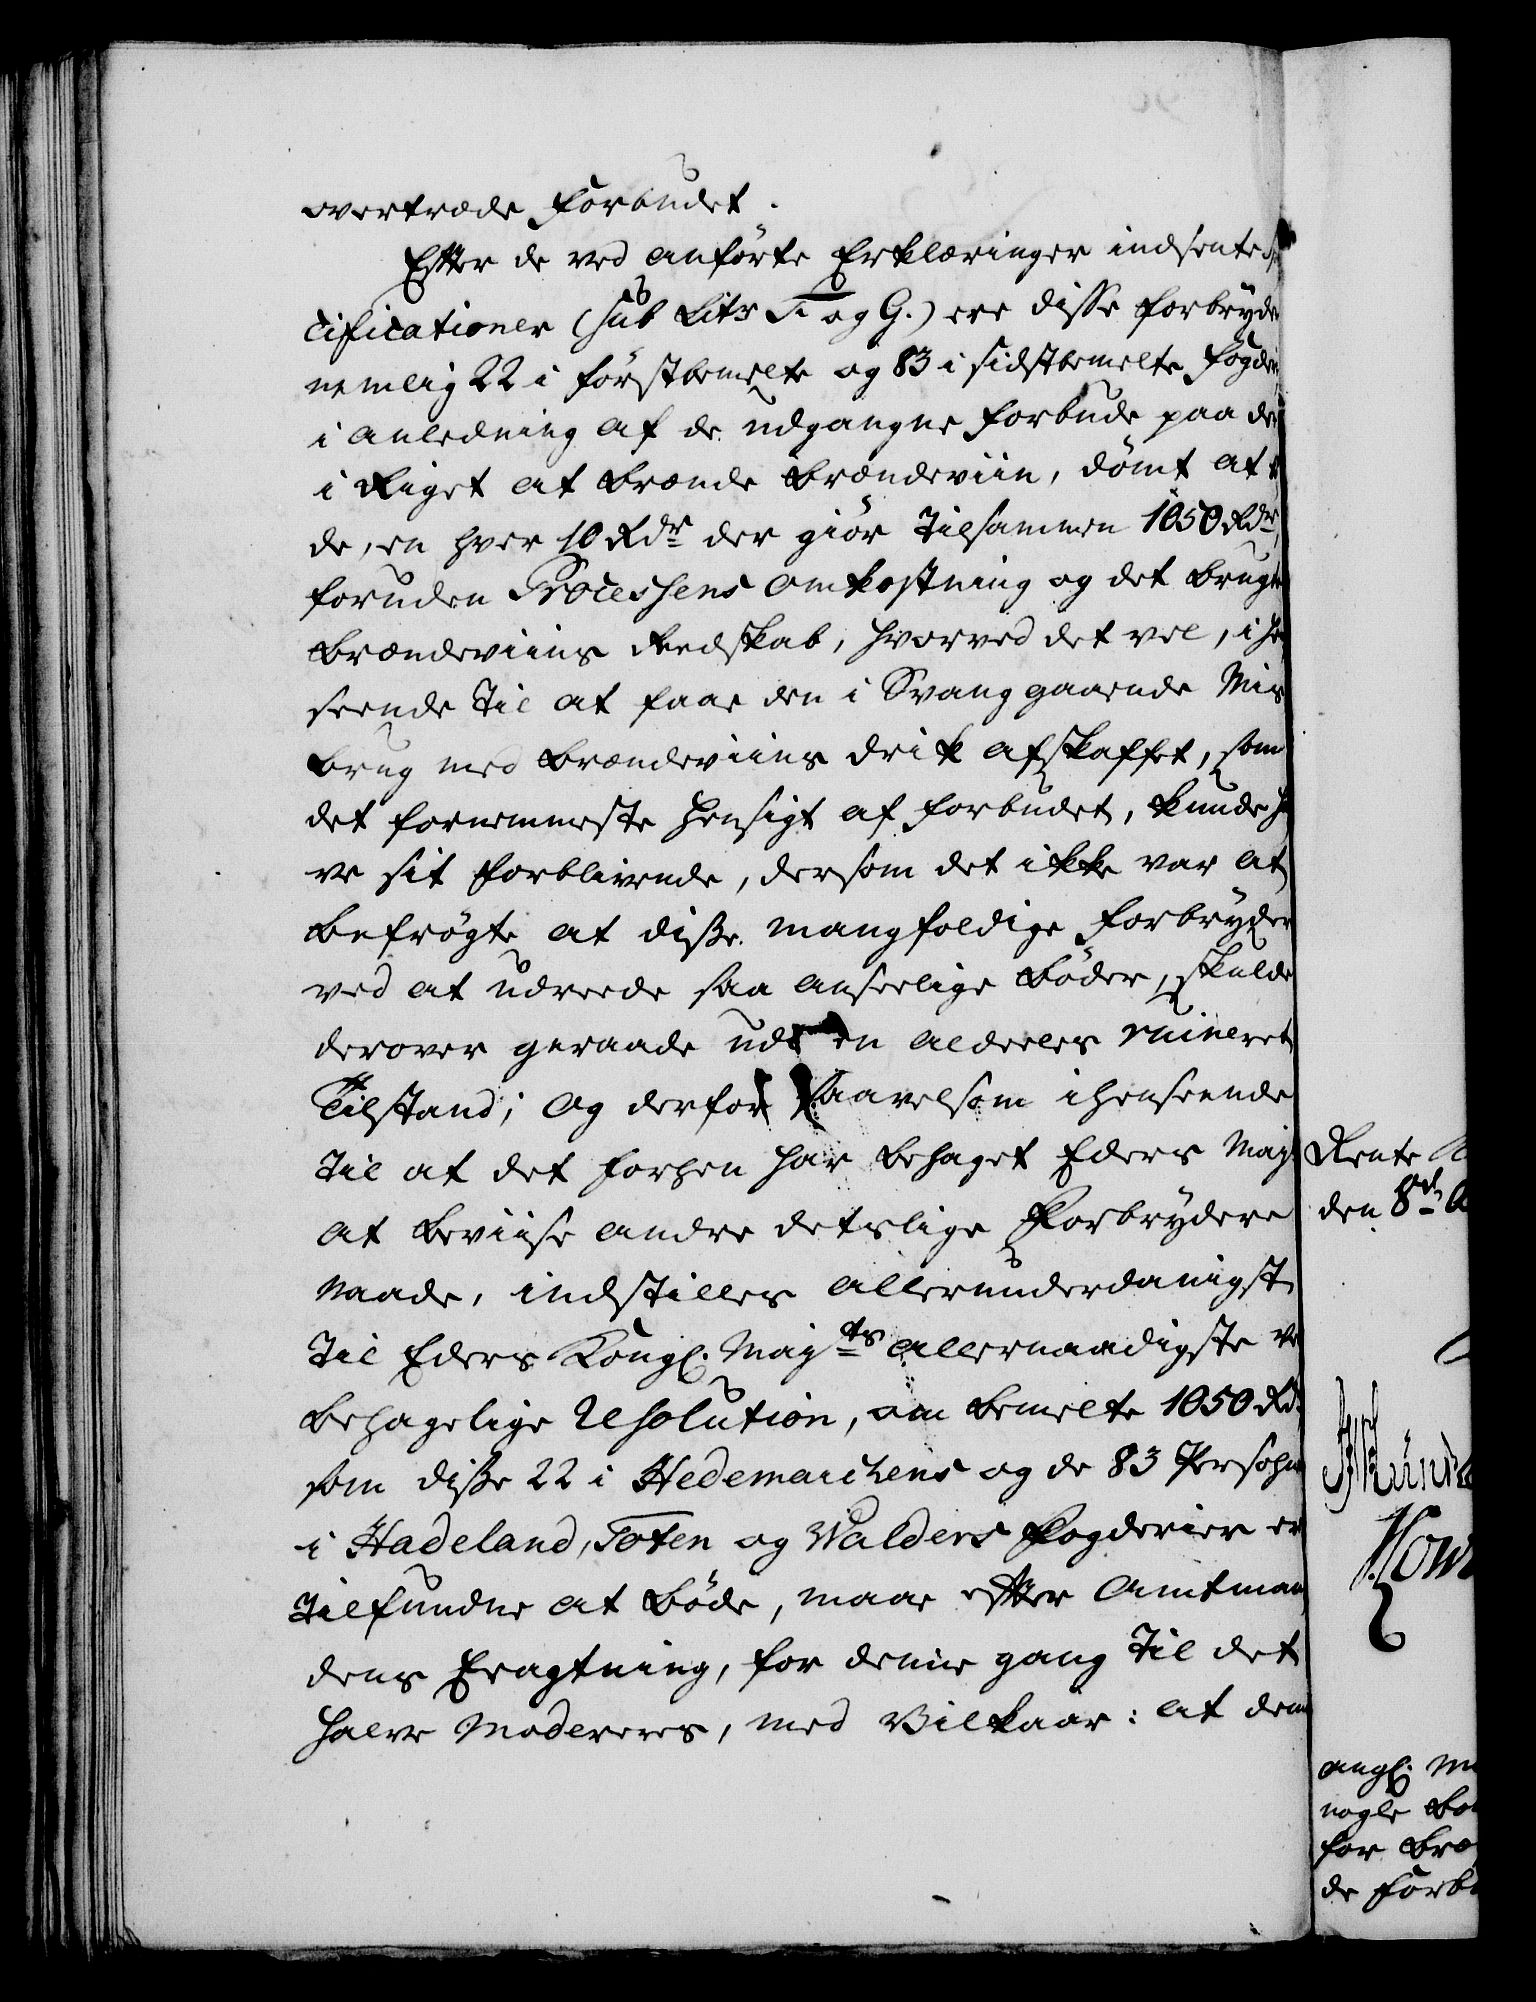 overtræde Forbudet.
Efter de ved anførte Erklæringer indsente
cificationer (sub Litr F og G.) ere disse forbryde
nemlig 22 i førstbemelte og 83 i sidstbemelte Fogderi
i anledning af de udgangne Forbude paa
i Riget at brænde Brændeviin, dømt at
de, en hver 10 Rdr der giør tilsammen 1050 Rdr,
foruden Processens Omkostning og det brugte
Brændeviins Redskab, hvorved det vel, i hen
seende til at faae den i Svang gaaende Mis
brug med Brændeviins drik afskaffet, som
det fornemmeste Hensigt af Forbudet, kunde ha
ve sit forblivende, dersom det ikke var at
befrygte at disse mangfoldige Forbrydere
ved at udreede saa anseelige Bøder, skulde
derover geraade udi en aldeeles ruineret
Tilstand; Og derfor saavelsom i henseende
til at det forhen har behaget Eders Mayt
at beviise andre deslige Forbrydere
Naade, indstilles allerunderdanigst
til Eders Kongl. Mayts allernaadigste vel
behagelige Resolution, om bemelte 1050 Rd
som disse 22 i Hedemarckens og de 83 Persohner
i Hadeland, Toten og Walders Fogderier er
tilfundne at bøde, maae efter Amtman
dens Eragtning, for denne gang til det
halve Modereres, med Vilkaar: at dem
Rente
den 8de
angl.
nogle
for Bræ
de Forb